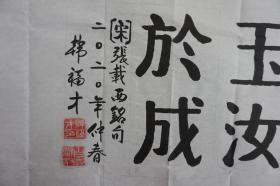 玉汝
於成
宋張載西銘句
二〇二〇年仲春
韩福才